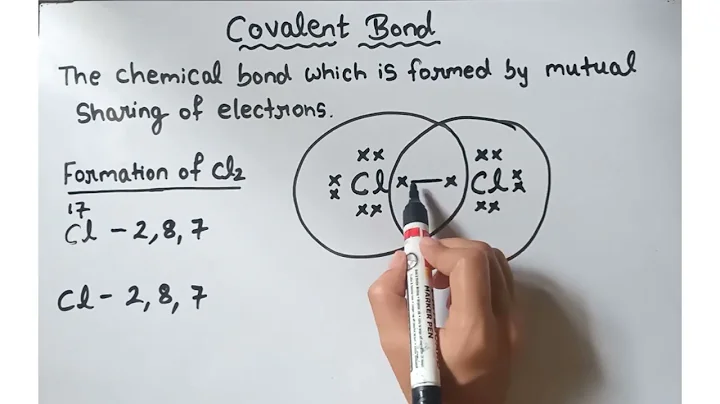 Covalent Bond
The chemical bond which is formed by mutual
sharing of electrons.
Formation of Cl2
17
Cl - 2, 8, 7
Cl - 2, 8, 7
xx xx
x x Cl x — x Cl x x
xx xx
MARKER PEN